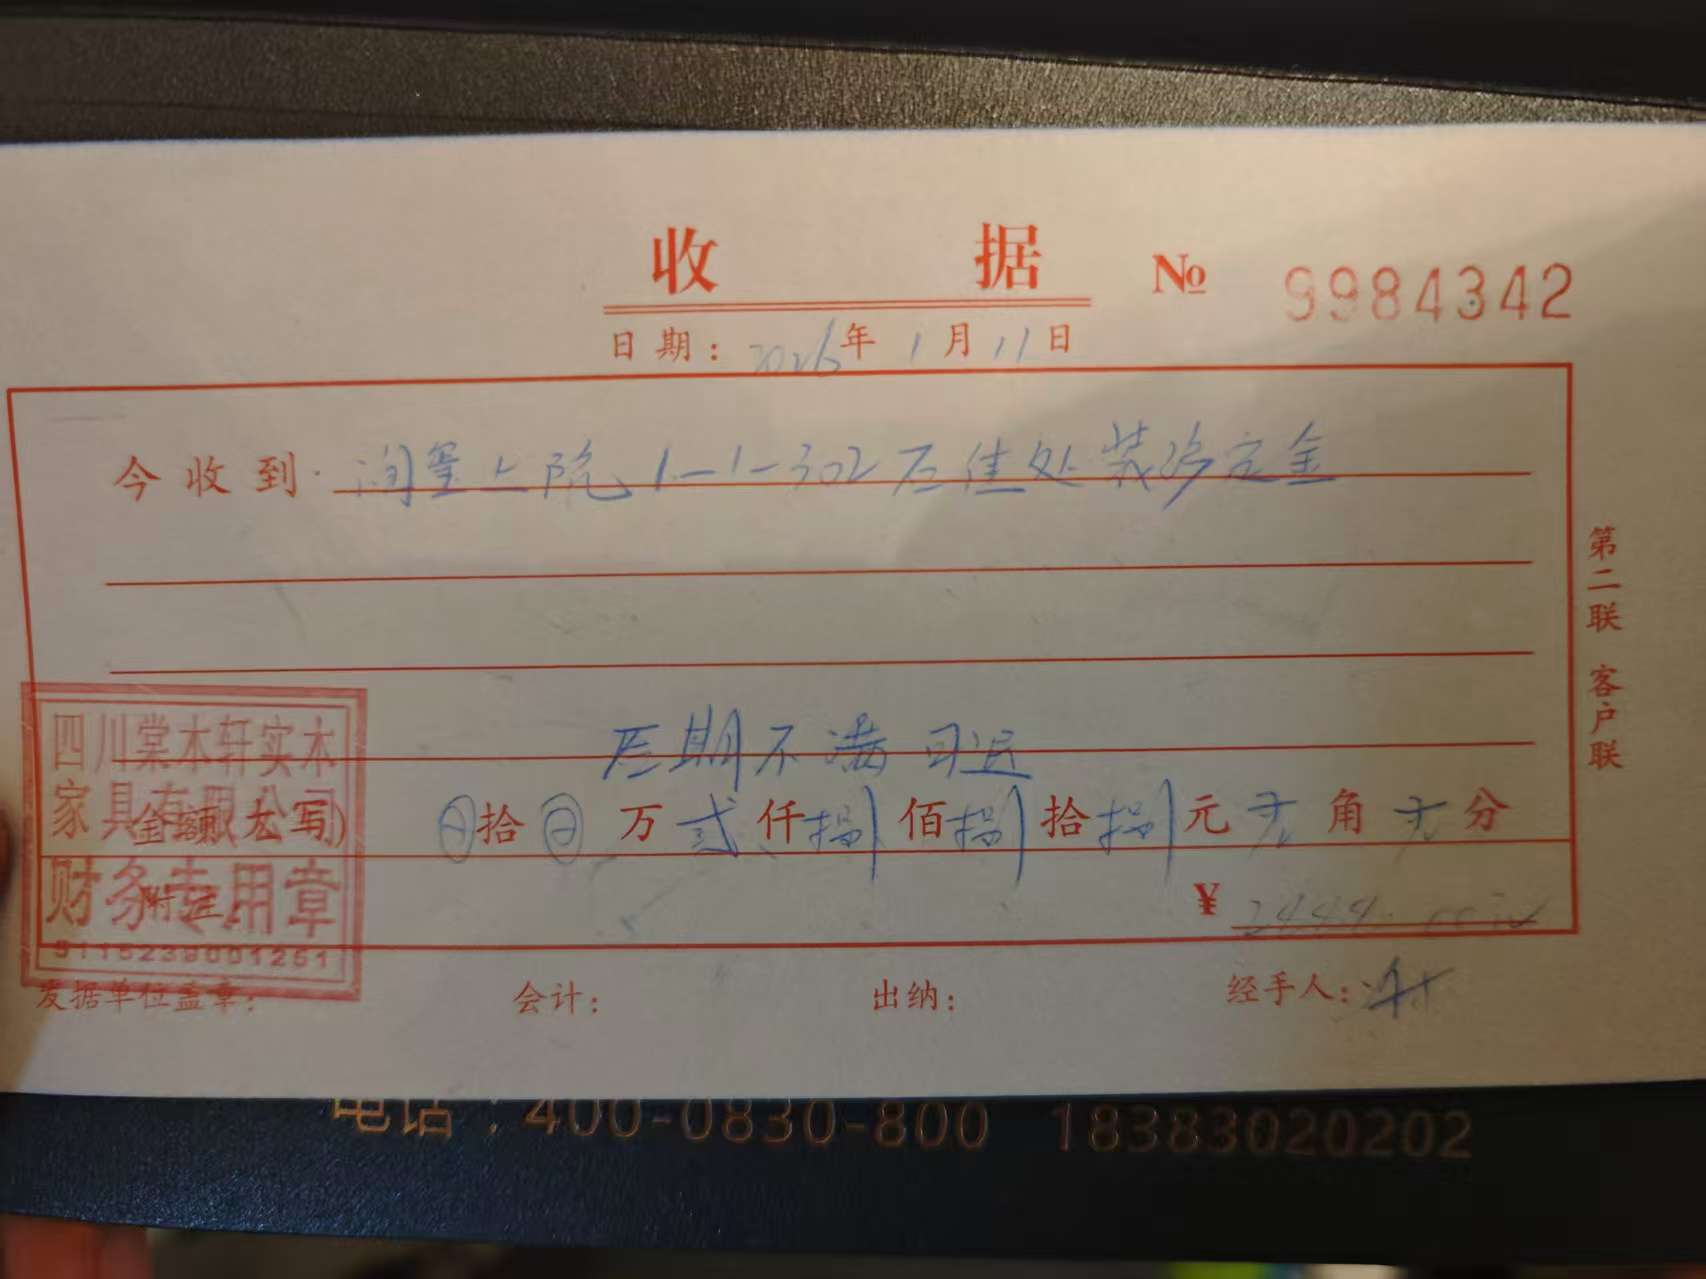 收 据 № 9984342
日期：2026年1月11日
今收到：润玺上院1-1-302石佳处装修定金
后期不满可退
金额(大写) 拾 万 贰 仟 捌 佰 捌 拾 捌 元 无 角 无 分
¥
第二联 客户联
四川棠木轩实木
家具有限公司
财务专用章
5115239001261
附注
发据单位盖章：
会计：
出纳：
经手人：
电话：400-0830-800 18383020202